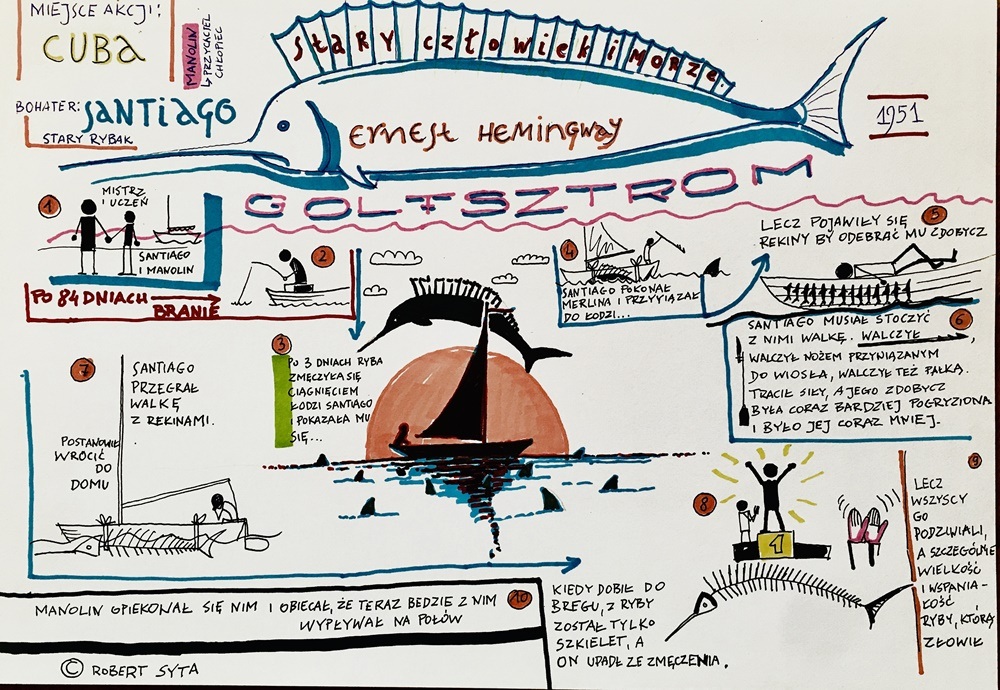 MIEJSCE AKCJI:
CUBA
MANOLIN
↳ PRZYJACIEL
CHŁOPIEC
BOHATER: SANTIAGO
STARY RYBAK
StaRY człowiek i MORZe
ERNEST HEMINGWAY
1951
GOLFSZTROM
1
MISTRZ
I UCZEŃ
SANTIAGO
I MANOLIN
PO 84 DNIACH
BRANIE
2
3
PO 3 DNIACH RYBA
ZMĘCZYŁA SIĘ
CIĄGNIĘCIEM
ŁODZI SANTIAGO
I POKAZAŁA MU
SIĘ...
4
SANTIAGO POKONAŁ
MERLINA I PRZYWIĄZAŁ
DO ŁODZI...
5
LECZ POJAWIŁY SIĘ
REKINY BY ODEBRAĆ MU ZDOBYCZ
6
SANTIAGO MUSIAŁ STOCZYĆ
Z NIMI WALKĘ. WALCZYŁ ,
WALCZYŁ NOŻEM PRZYWIĄZANYM
DO WIOSŁA, WALCZYŁ TEŻ PAŁKĄ.
TRACIŁ SIŁY, A JEGO ZDOBYCZ
BYŁA CORAZ BARDZIEJ POGRYZIONA
I BYŁO JEJ CORAZ MNIEJ.
7
SANTIAGO
PRZEGRAŁ
WALKĘ
Z REKINAMI.
POSTANOWIŁ
WRÓCIĆ
DO
DOMU
8
1
KIEDY DOBIŁ DO
BREGU, Z RYBY
ZOSTAŁ TYLKO
SZKIELET, A
ON UPADŁ ZE ZMĘCZENIA.
9
LECZ
WSZYSCY
GO
PODZIWIALI,
A SZCZEGÓLNIE
WIELKOŚĆ
I WSPANIA-
ŁOŚĆ
RYBY, KTÓRĄ
ZŁOWIŁ
MANOLIN OPIEKOWAŁ SIĘ NIM I OBIECAŁ, ŻE TERAZ BEDZIE Z NIM
WYPŁYWAŁ NA POŁÓW
10
© ROBERT SYTA